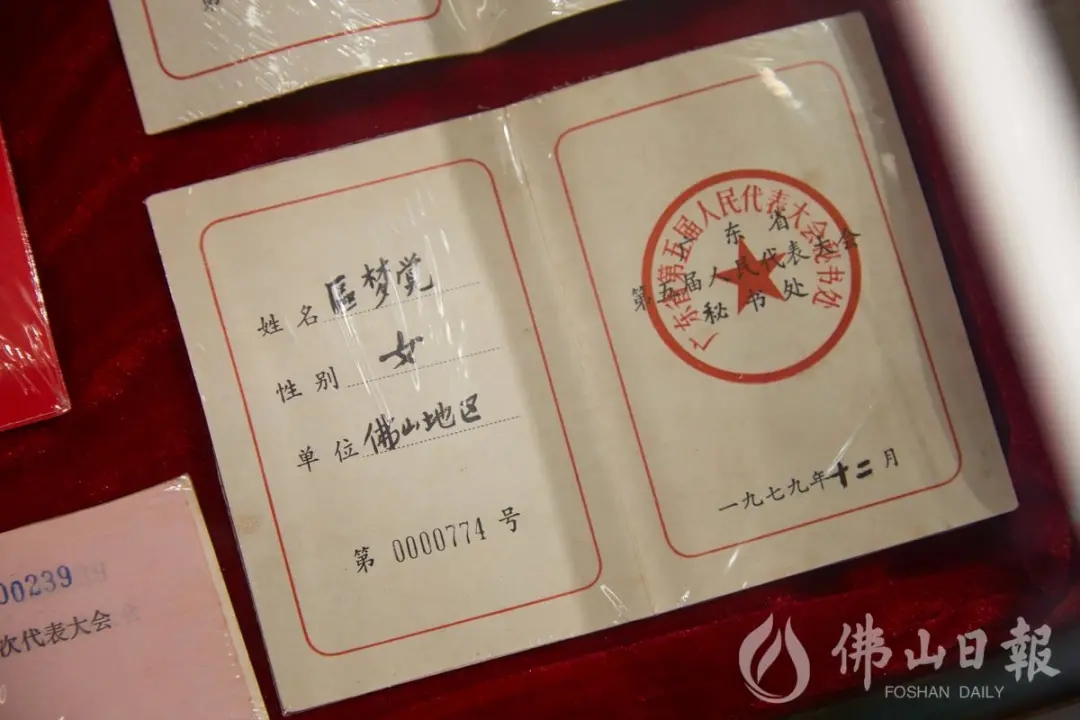 姓名 區梦觉
性别 女
单位 佛山地区
第 0000774 号
广东省第五届人民代表大会秘书处
广东省
第五届人民代表大会
秘书处
一九七九年十二月
00239
次代表大会
佛山日報
FOSHAN DAILY